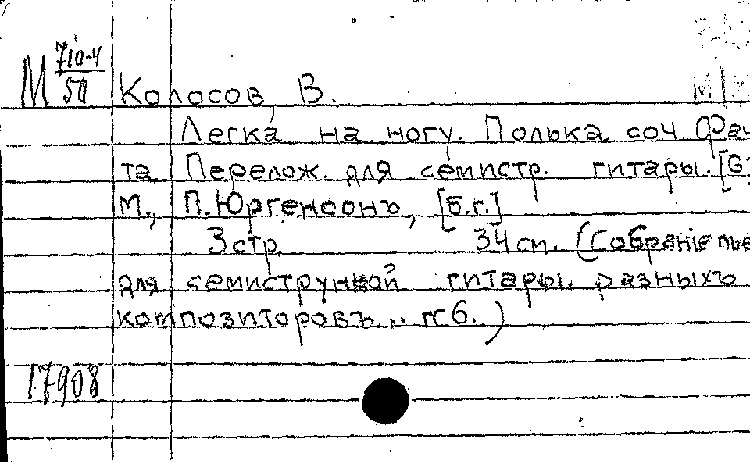 М 710-4
50
Колосов, В.
Легка на ногу. Полька соч Фау
та Перелож. для семистр. гитары. [Б.
М., П. Юргенсонъ, [Б.г.]
3 стр 34 см. (Собранiе пье
для семиструнной гитары разныхъ
композиторовъ..
17908